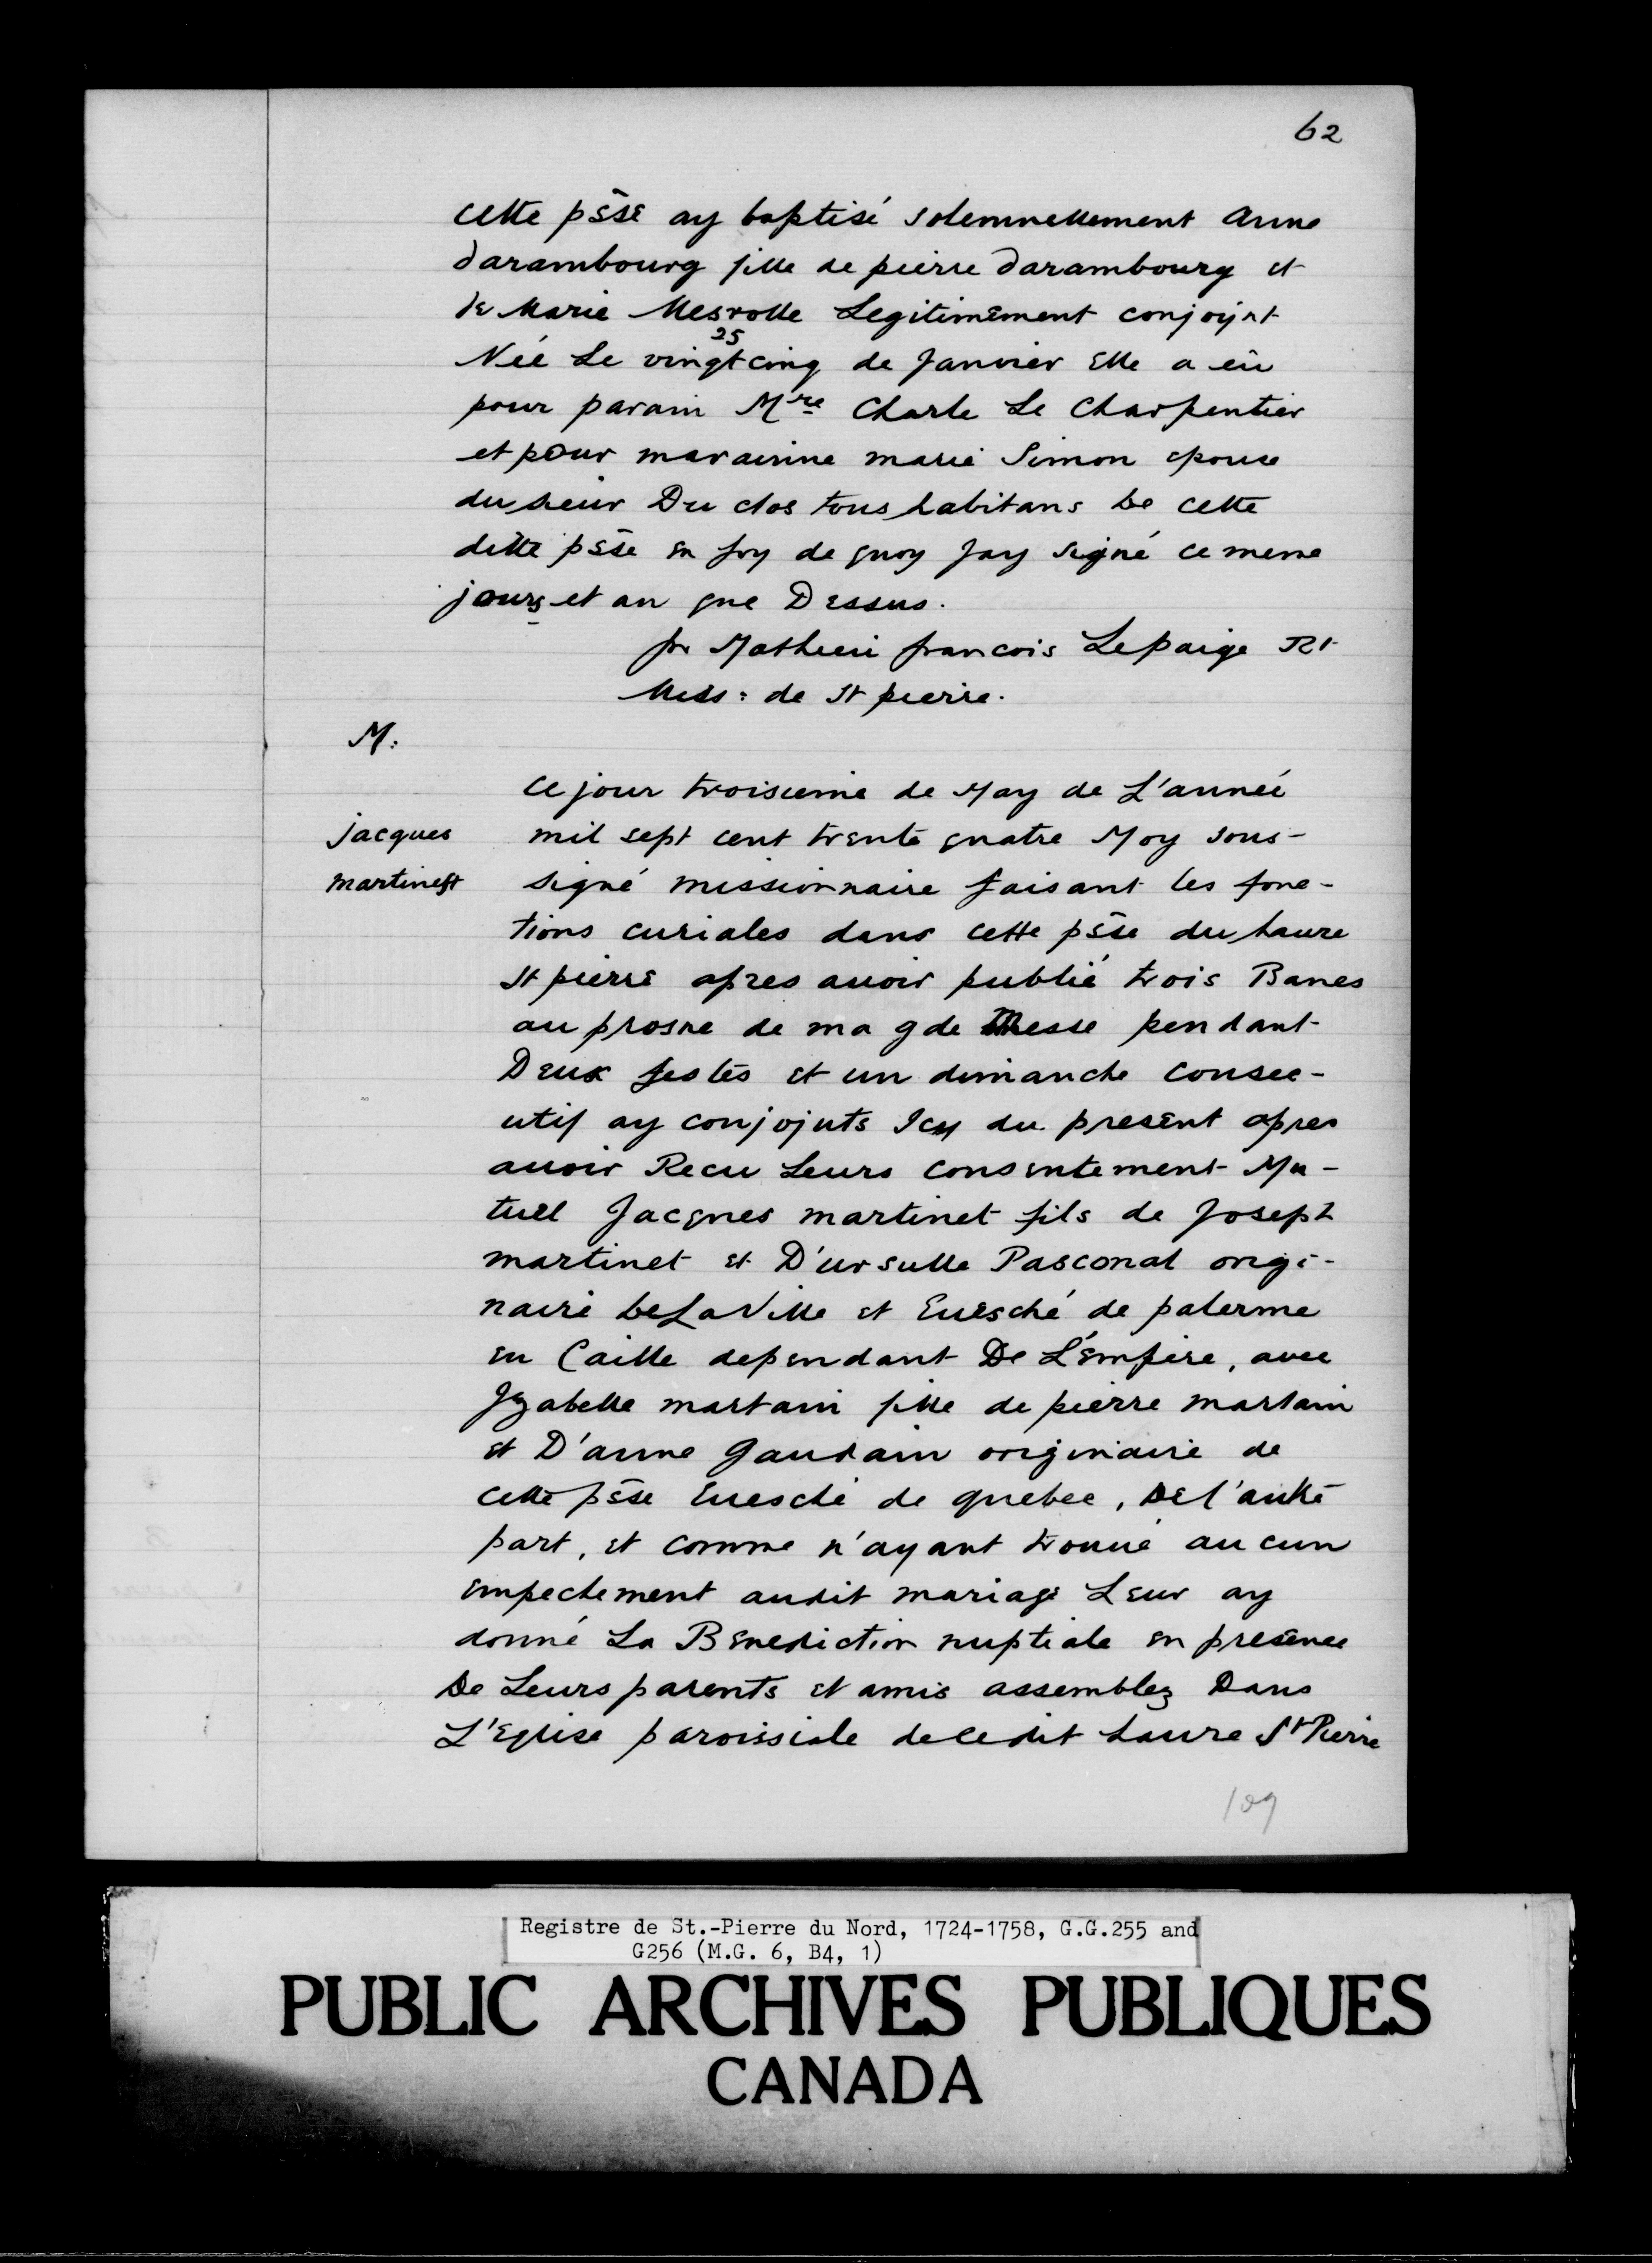 62
cette pšse ay baptisé solemnellement anne
darambourg fille de pierre darambourg et
de Marie Mesrolle Legitimement conjoint
25
Née Le vingtcinq de Janvier Elle a eü
pour parain Mre Charle Le Charpentier
et pour marainne marie Simon epouse
du sieur Du clos tous habitans de cette
ditte pšse en foy de quoy Jay signé ce meme
jours et an que Dessus.
fr Mathieu francois Lepaige Rt
Miss: de St pierre.
M:
ce jour troisieme de May de L'année
jacques mil sept cent trente quatre Moy sous-
martinest signé missionnaire faisant les fonc-
tions curiales dans cette pšse du haure
St pierre apres auoir publié trois Bancs
au prosne de ma gde Messe pendant
Deux festes et un dimanche consec-
utif ay conjojnts Icy du present apres
auoir Recu Leurs consentement Mu-
tuel Jacques martinet fils de Joseph
martinet et D'ursulle Pasconal origi-
naire de La Ville et Euesché de palerme
en Caille dependant De L'Empire, avec
Jzabelle martain fille de pierre martain
et D'anne Gaudain originaire de
cette pšse Euesché de quebec, de l'autre
part, et comme n'ayant trouué aucun
empechement audit mariage Leur ay
donné La Benediction nuptiale en presence
De Leurs parents et amis assemblez Dans
L'Eglise paroissiale de ce dit haure St Pierre
109
Registre de St.-Pierre du Nord, 1724-1758, G.G.255 and
G256 (M.G. 6, B4, 1)
PUBLIC ARCHIVES PUBLIQUES
CANADA